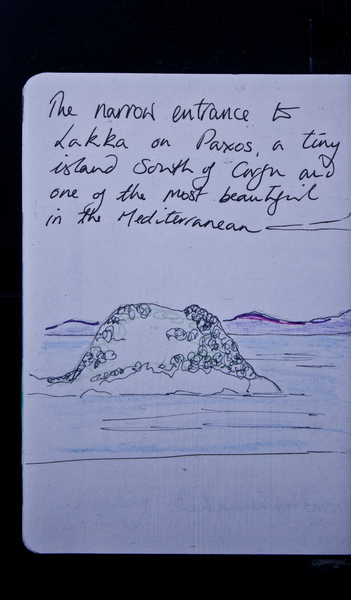 The narrow entrance to
Lakka on Paxos, a tiny
island South of Corfu and
one of the most beautiful
in the Mediterranean